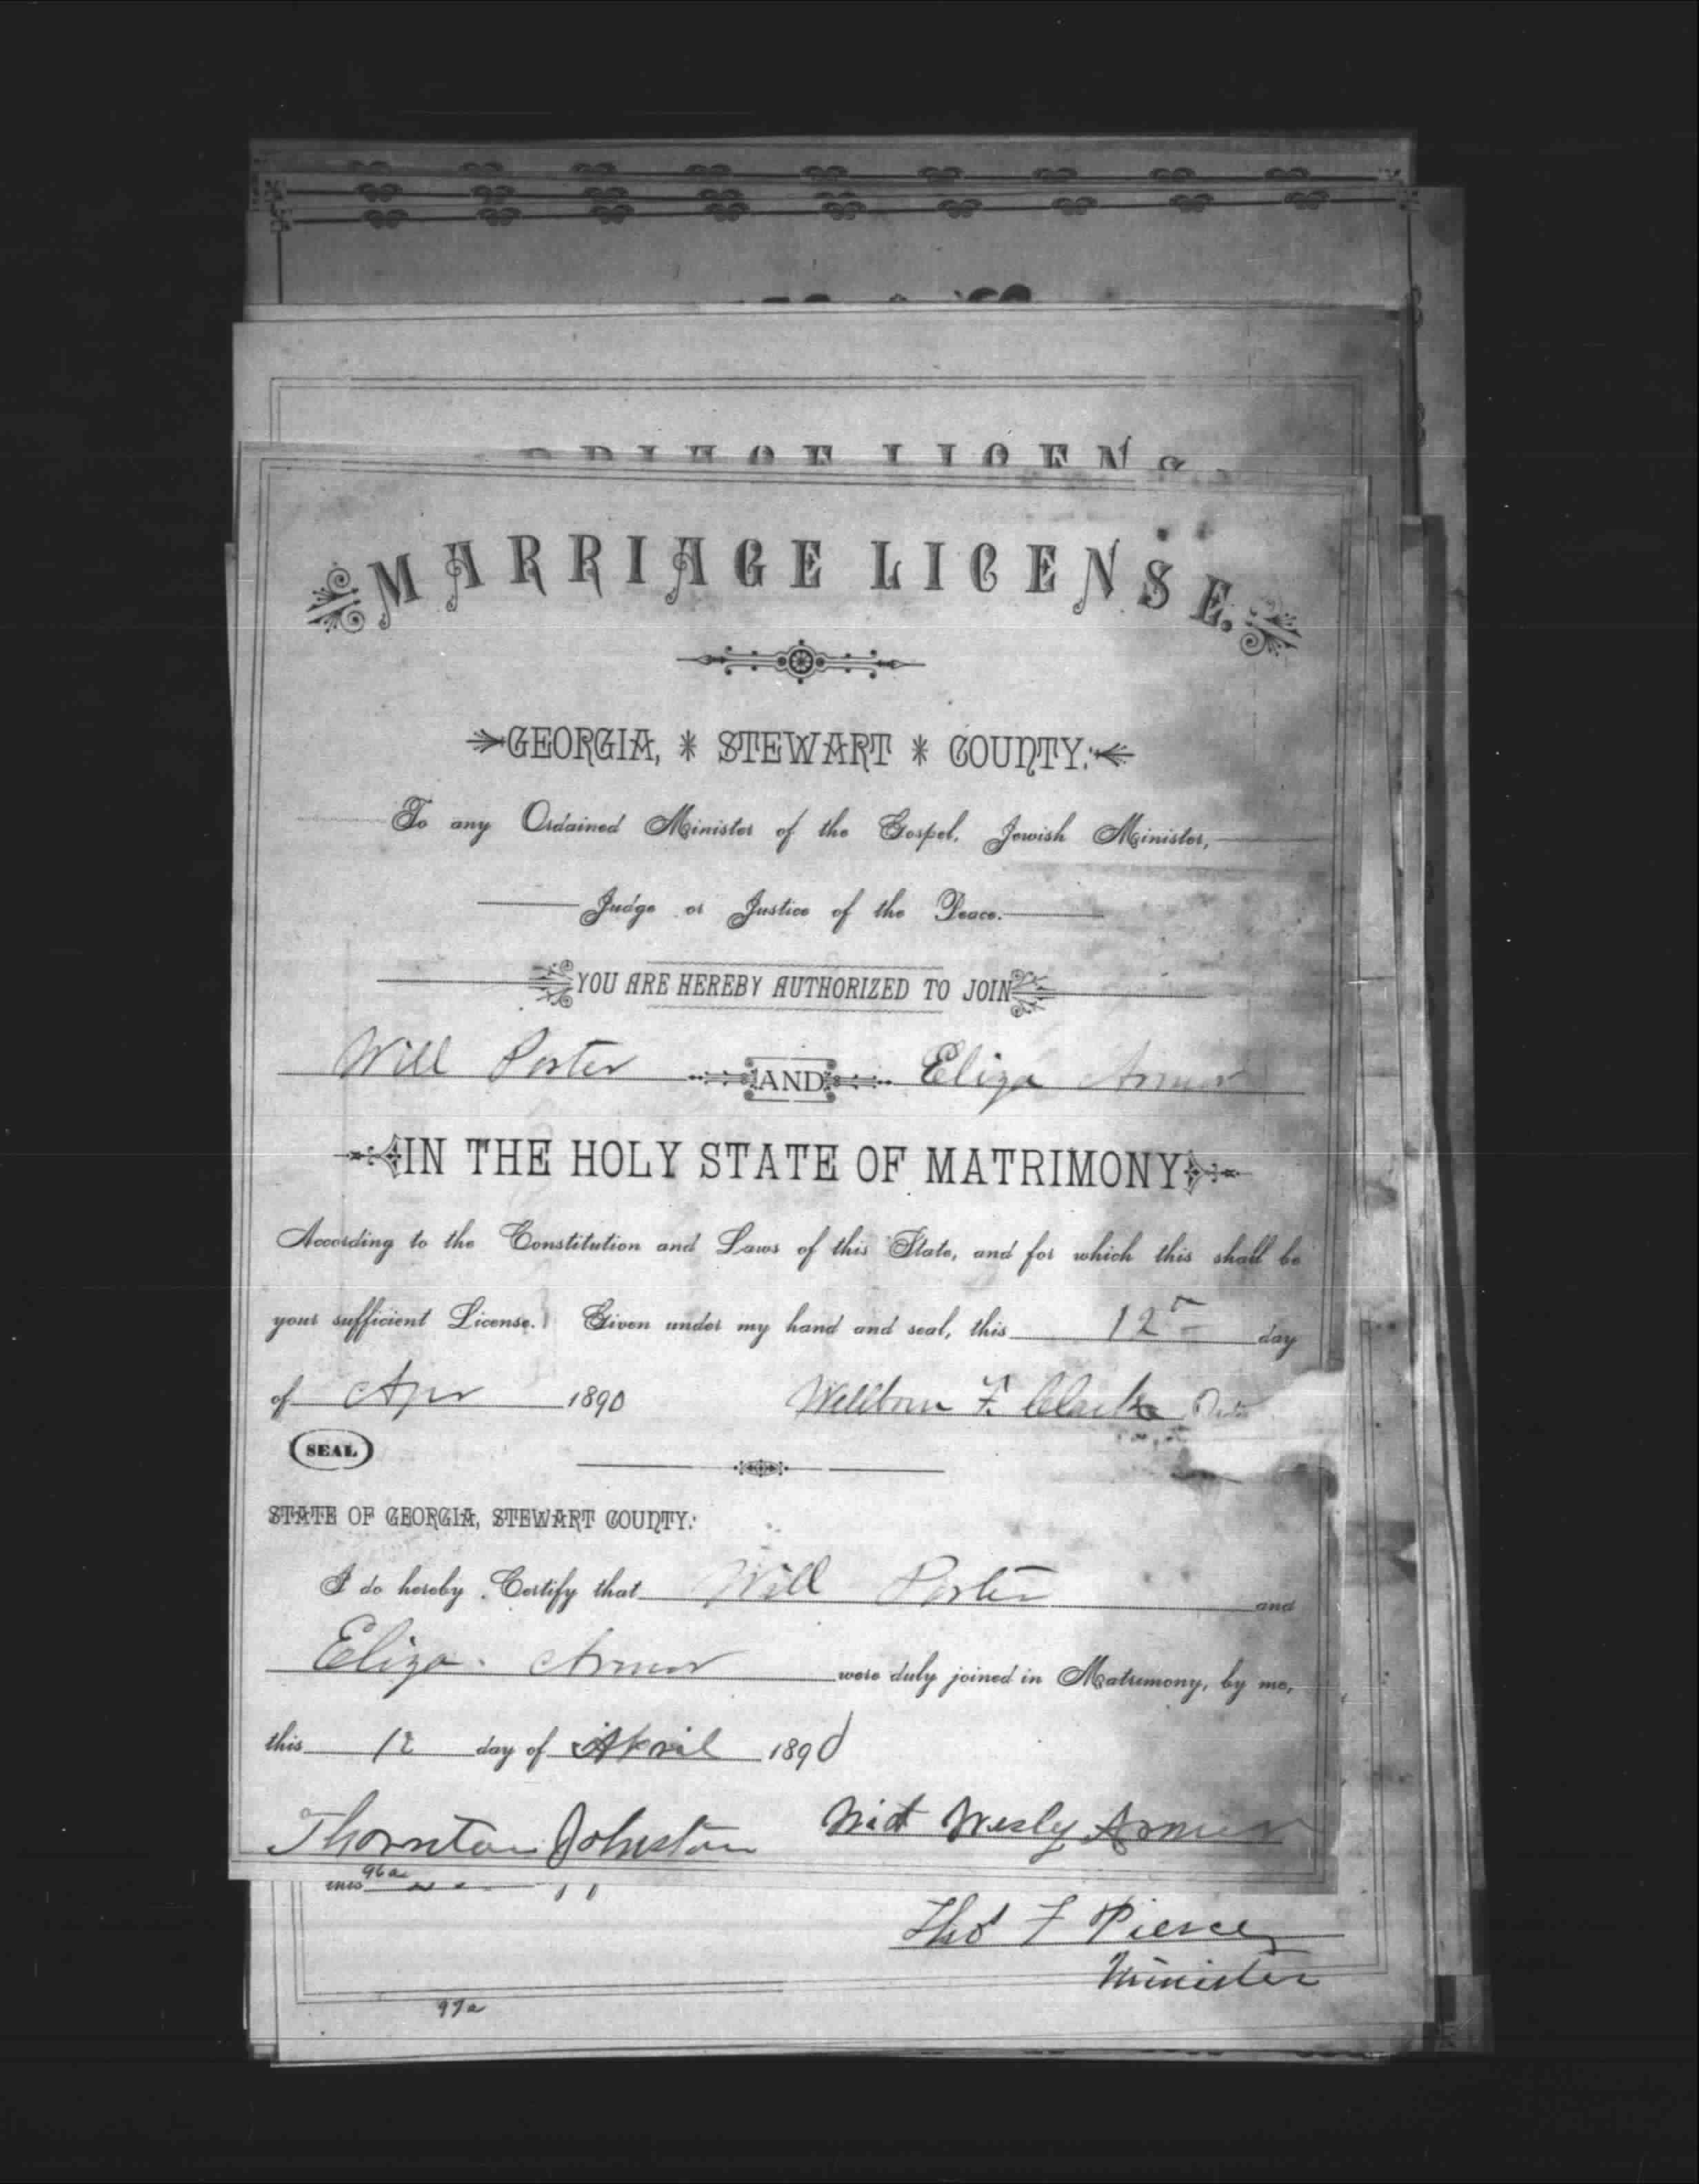 MARRIAGE LICENSE.
GEORGIA, * STEWART * COUNTY:
To any Ordained Minister of the Gospel, Jewish Minister,
Judge or Justice of the Peace.
YOU ARE HEREBY AUTHORIZED TO JOIN
Will Porter AND Eliza Armor
IN THE HOLY STATE OF MATRIMONY
According to the Constitution and Laws of this State, and for which this shall be
your sufficient License. Given under my hand and seal, this 12 day
of Apr 1890 F. Clarke
SEAL
STATE OF GEORGIA, STEWART COUNTY:
I do hereby Certify that Will Porter and
Eliza Armor were duly joined in Matrimony, by me,
this 12 day of April 1890
Thornton Johnston Wesly Armor
96a
this
Thos F Pierce
Minister
97a